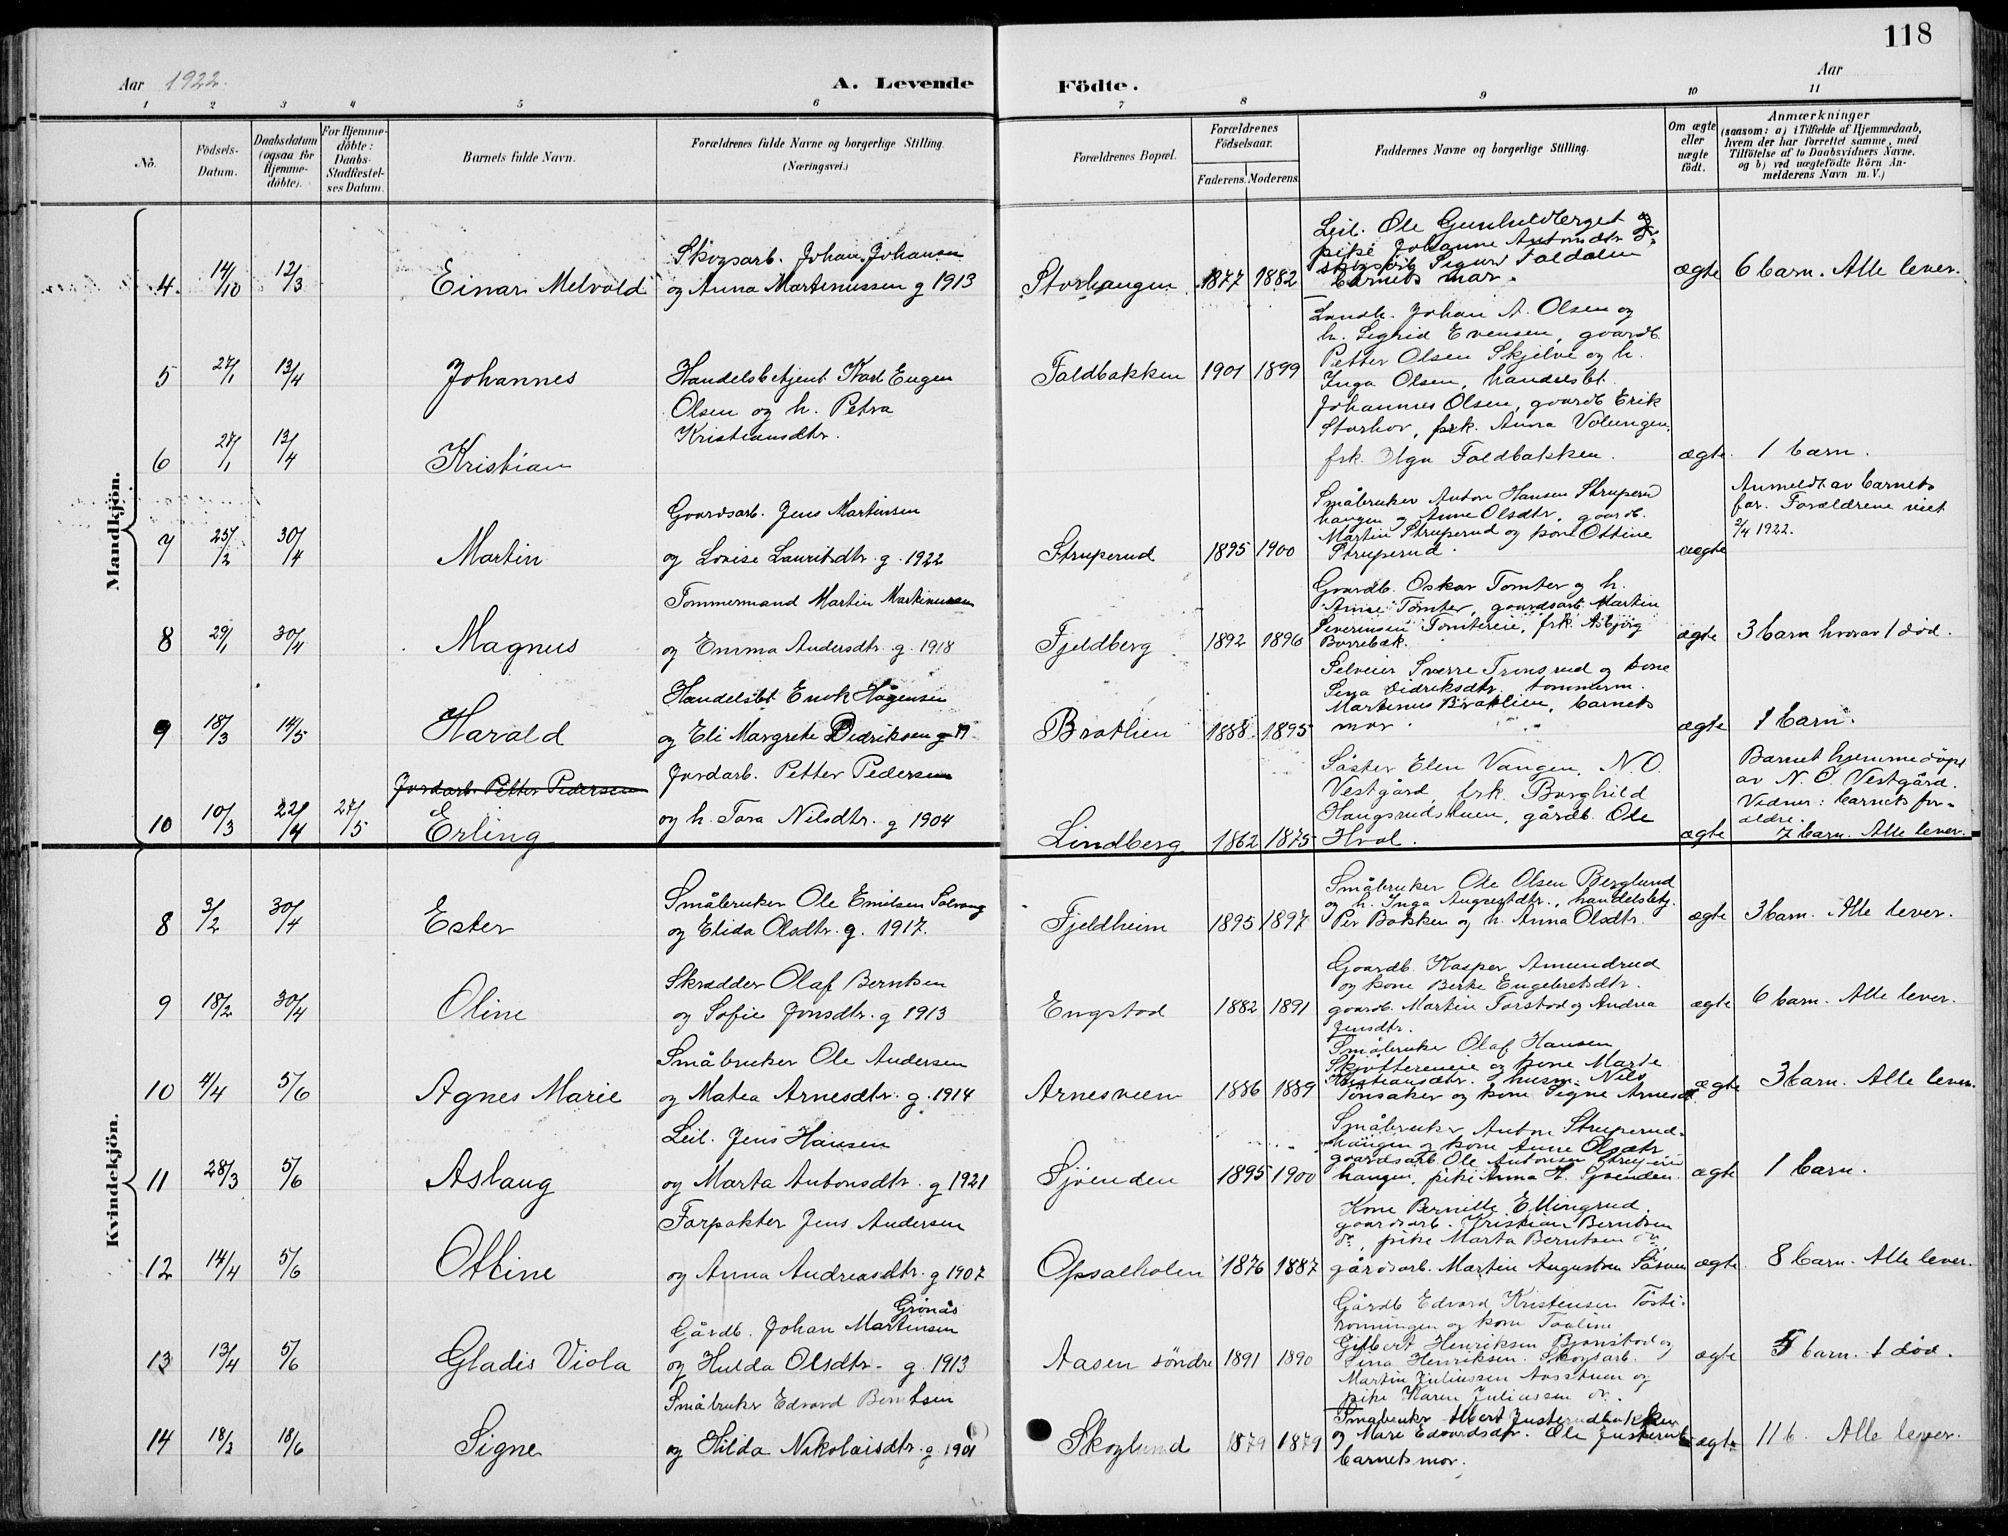 118
Aar 1922.
A. Levende Födte.
Aar
1 2 3 4 5 6 7 8 9 10 11
No.
Födsels-Datum.
Daabsdatum (ogsaa for Hjemme-döbte).
For Hjemme-döbte: Daabs-Stadfæstel-ses Datum.
Barnets fulde Navn.
Forældrenes fulde Navne og borgerlige Stilling. (Næringsvei.)
Forældrenes Bopæl.
Forældrenes Födselsaar.
Faderens. Moderens.
Faddernes Navne og borgerlige Stilling.
Om ægte eller uægte født.
Anmærkninger
(saasom: a) i Tilfælde af Hjemmedaab, hvem der har forrettet samme, med Tilföielse af to Daabsvidners Navne, og b) ved uægtefödte Börn An-melderens Navn m. V.)
Mandkjön.
4 14/10 12/3 Einar Melvold
Skogsarb. Johan Johansen
og Anna Martinussen g 1913
Storhaugen 1877 1882
Leil. Ole Gunhildberget og
pike Johanne Antonsdtr
skogsarb Sigurd Foldalen
barnets mor.
ægte 6 barn. Alle lever.
5 27/1 13/4 Johannes
Handelsbetjent Karl Eugen
Olsen og h. Petra
Kristiansdtr.
Foldbakken 1901 1899
Landh. Johan A. Olsen og
h. Sigrid Evensen, gaardb.
Petter Olsen Skjelve og h.
Inga Olsen, handelsbt.
Johannes Olsen, gaardb Erik
Storhov, frk. Anna Volungen,
frk. Olga Foldbakken.
6 27/1 13/4 Kristian
ægte 1 barn.
7 25/2 30/4 Martin
Gaardsarb. Jens Martinsen
og Lovise Lauritsdtr. g. 1922
Struperud 1895 1900
Småbruker Anton Hansen Struperud
haugen og Anne Olsdtr, gaardb.
Martin Struperud og kone Ottine
Struperud.
uægte
Anmeldt av barnets
far. Forældrene viet
2/4 1922.
8 29/1 30/4 Magnus
Tømmermand Martin Martinussen
og Emma Andersdtr. g. 1918
Fjeldberg 1892 1896
Gaardb. Oskar Tomter og h.
Anne Tomter, gaardsarb. Martin
Severinsen Tomtereie, frk. Asbjörg
Borrebæk.
ægte 3 barn hvorav 1 død.
9 18/3 14/5 Harald
Handelsbt Enok Hågensen
og Eli Margrete Didriksen g 19
Bratlien 1888 1895
Selveier Sverre Tronsrud og kone
Sina Didriksdtr, tømmerm.
Martinus Bratlien, barnets
mor.
ægte 1 barn.
Jordarb. Petter Pedersen
10 10/3 22/4 27/5 Erling
Jordarb. Petter Pedersen
og h. Tora Nilsdtr. g 1904
Lindberg 1862 1875
Søster Elen Vangen, N.O.
Vestgård, frk. Borghild
Haugsrudstuen, gårdb. Ole
Hval.
ægte
Barnet hjemmedöpt
av N. O. Vestgård.
Vidner: barnets for-
ældre.
7 barn. Alle lever.
Kvindekjön.
8 3/2 30/4 Ester
Småbruker Ole Emilsen Solvang
og Elida Olsdtr. g. 1917.
Fjeldheim 1895 1897
Småbruker Ole Olsen Berglund
og h. Inga Augustdtr., handelsbtj.
Per Bakken og h. Anna Olsdtr.
ægte 3 barn. Alle lever.
9 18/2 30/4 Oline
Skrædder Olaf Berntsen
og Sofie Jonsdtr. g 1913
Engstad 1882 1891
Gaardb. Kasper Amundrud
og kone Berte Engebretsdtr.
gaardb. Martin Torstad og Andrea
Jensdtr.
ægte 6 barn. Alle lever.
10 4/4 5/6 Agnes Marie
Småbruker Ole Andersen
og Matea Arnesdtr. g. 1914
Arnesveen 1886 1889
Småbruker Olaf Hansen
Skjøttereneie og kone Marte
Kristiansdtr. husm. Nils
Tønsaker og kone Signe Arnesdtr
ægte 3 barn. Alle lever.
11 28/3 5/6 Aslaug
Leil. Jens Hansen
og Marta Antonsdtr. g 1921
Sjøenden 1895 1900
Småbruker Anton Struperud-
haugen og kone Anne Olsdtr
gaardsarb. Ole Antonsen
haugen, pike Anna H. Sjøenden
ægte 1 barn.
12 14/4 5/6 Ottine
Forpakter Jens Andersen
og Anna Andreasdtr. g 1907
Opsalholen 1876 1887
Kone Bernille Ellingrud,
gaardsarb. Kristian Berntsen
do, pike Marta Berntsen do
gårdsarb. Martin Augustsen Såsven
ægte 8 barn. Alle lever.
13 13/4 5/6 Gladis Viola
Grönås
Gårdb. Johan Martinsen
og Hulda Olsdtr. g. 1913
Aasen söndre 1891 1890
Gårdb Edvard Kristensen Tösti-
ronningen og kone Pauline
Gilbert Henriksen Bjønstad og
Lina Henriksen. Skogsarb.
Martin Juliussen Aasstuen og
pike Karen Juliussen do.
ægte 5 barn. 1 død.
14 18/2 18/6 Signe
Småbruker Edvard Berntsen
og Hilda Nikolaisdtr. g. 1901
Skoglund 1879 1879
Småbruker Albert Justerudbakken
og Mare Edvardsdtr. Ole Justerud
barnets mor.
ægte 11 b. Alle lever.